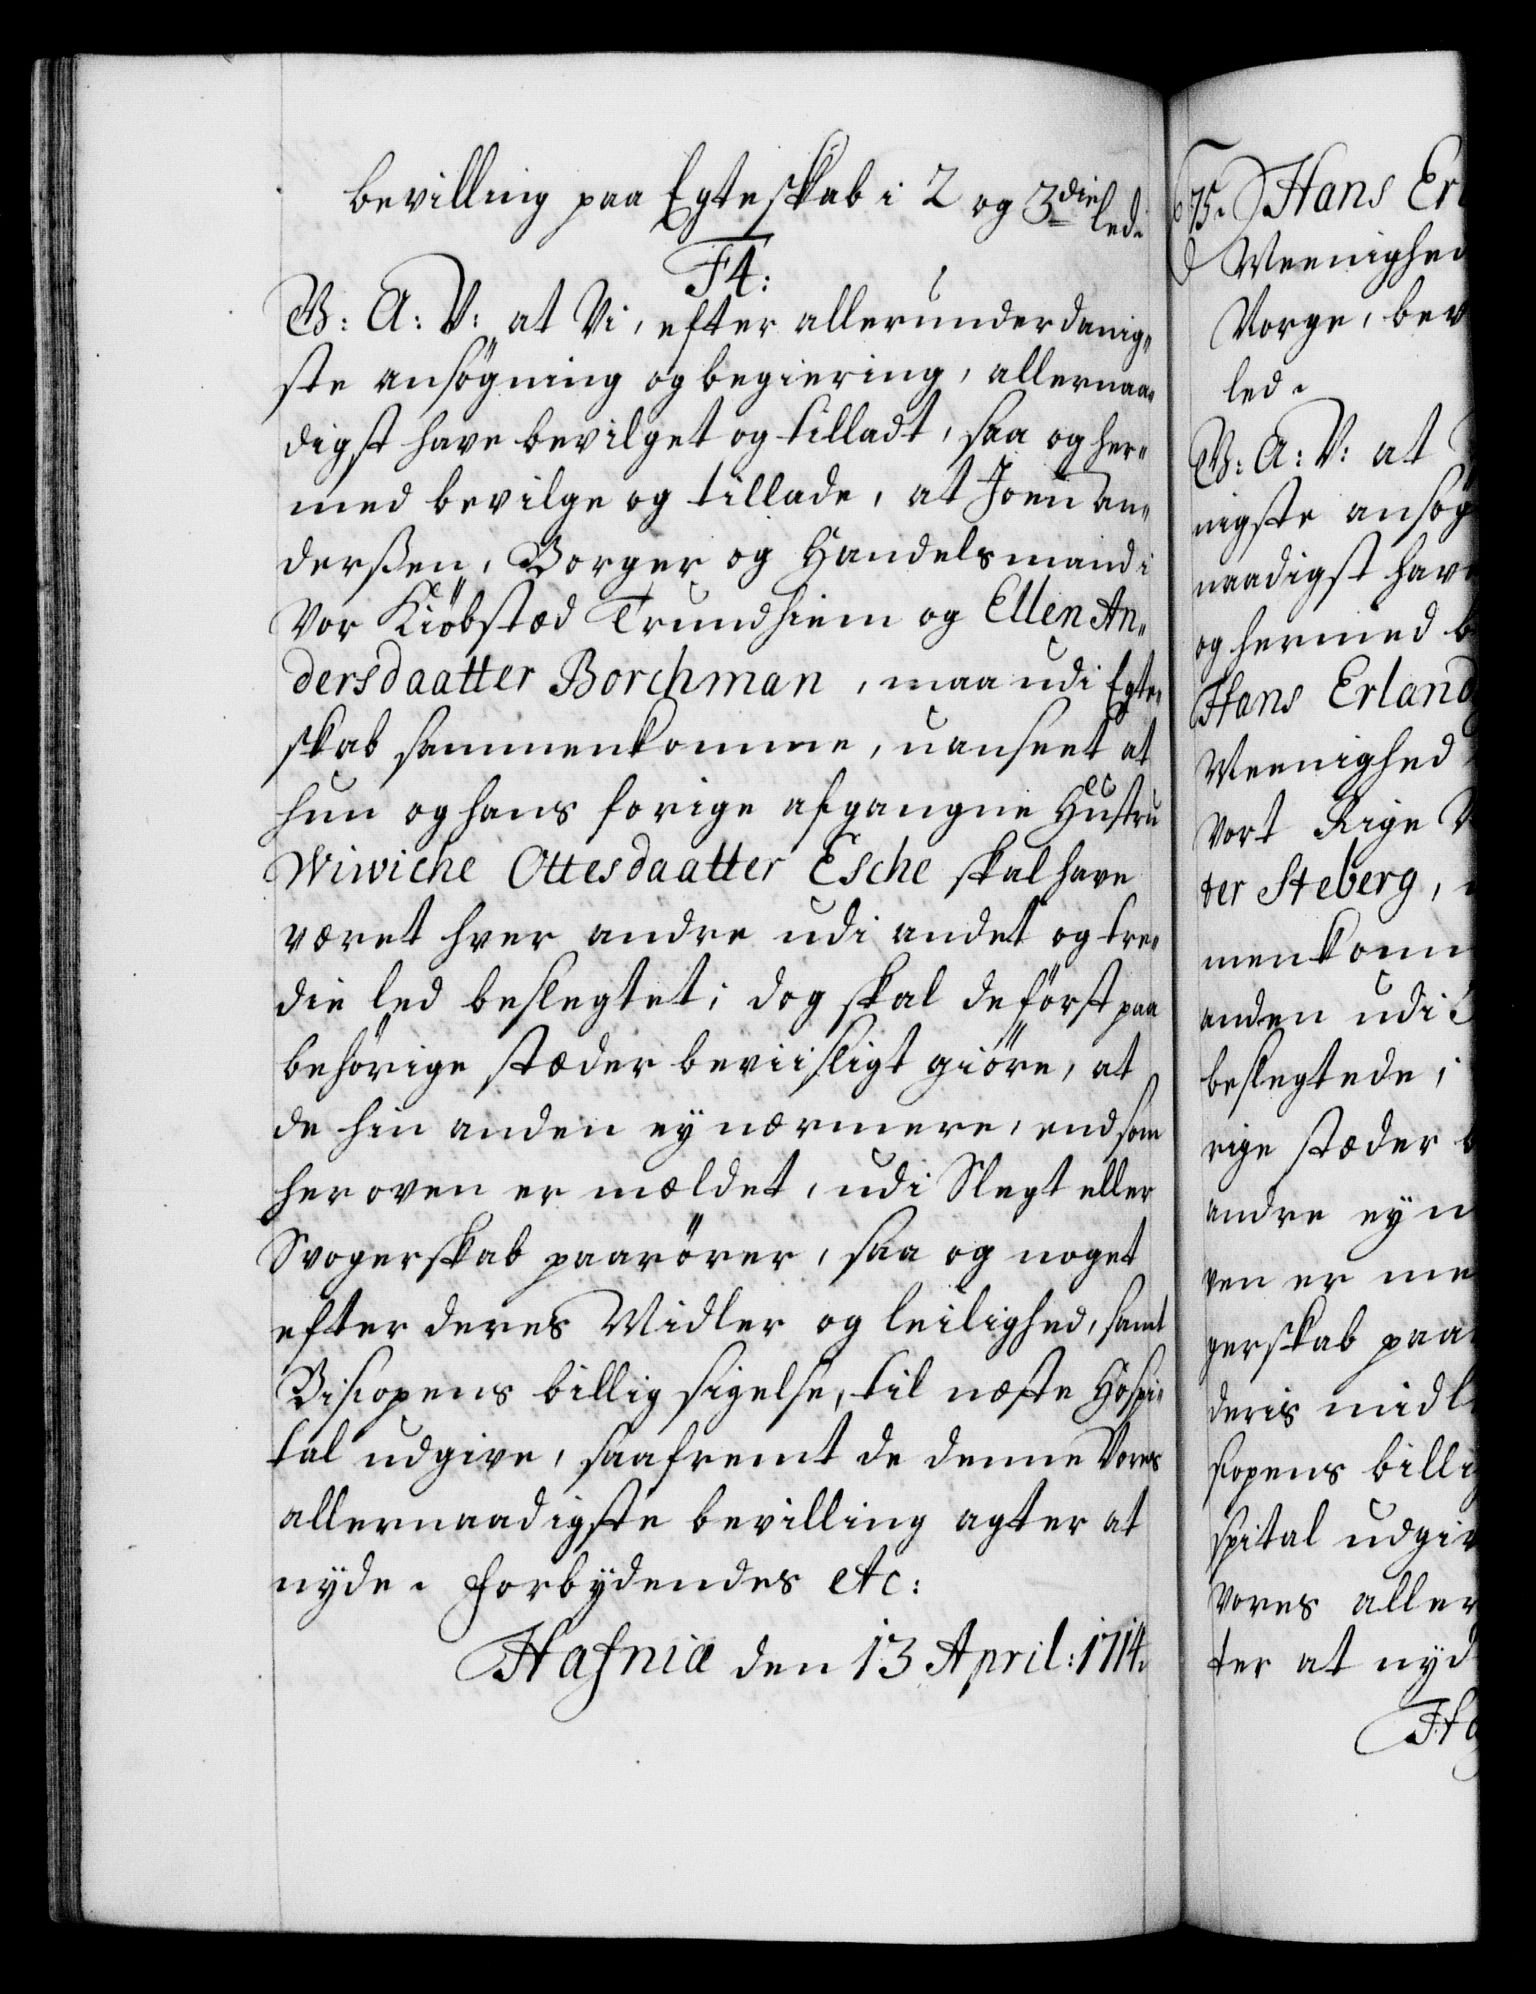 bevilling paa Egteskab i 2 og 3die led.
F4:
G: A: V: at Vi, efter allerunderdanig-
ste ansögning og begiering, allernaa-
digst have bevilget og tilladt, saa og her-
med bevilge og tillade, at Joen An-
derßen, Borger og Handelsmand i
Vor Kiöbstæd Trundhiem og Ellen An-
dersdaatter Borchman, maa udi Egte-
skab sammenkomme, uanseet at
hun og hans forige afgangne Hustru
Wiwiche Ottesdaatter Esche skal have
været hver andre udi andet og tre-
die led beslegtet; dog skal de först paa
behörige stæder beviisligt giöre, at
de hin anden ey nærmere, end som
her oven er mældet, udi Slegt eller
Svogerskab paarörer, saa og noget
efter deres Midler og leilighed, samt
Biscopens billig sigelse, til næste Hospi-
tal udgive, saafremt de denne Vores
allernaadigste bevilling agter at
nyde. Forbydendes etc:
Hafniæ den 13 April: 1714.
75. Hans Erl
Meenighed
Norge, bev
led.
G: A: V: at
nigste ansög
naadigst have
og hermed b
Hans Erland
Meenighed
Vort Rige N
ter Steberg,
menkomm
anden udi
beslegtede;
rige stæder b
andre ey n
ven er me
gerskab paa
deris midl
scopens billig
spital udgiv
Vores aller
ter at nyd
Ha